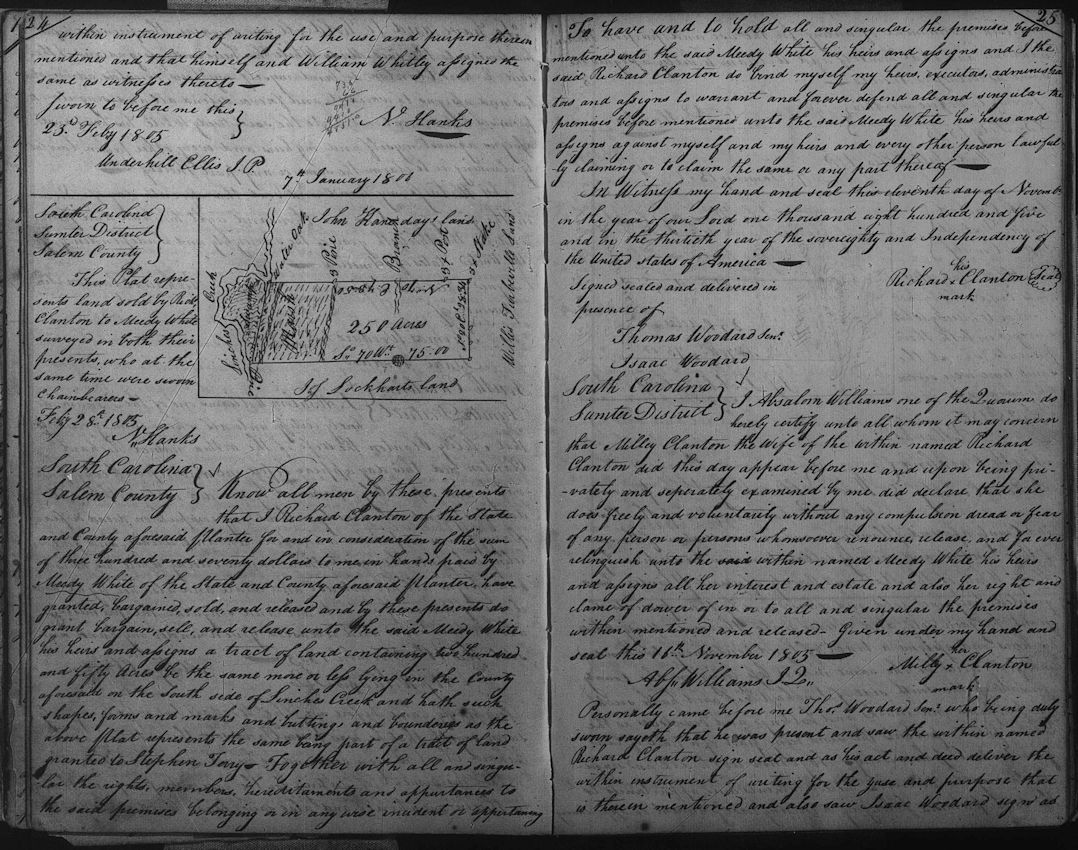 124
within instrument of writing for the use and purpose therein
mentioned and that himself and William Whitley assigned the
same as witnesses thereto
Sworn to before me this
23d Feby 1805
N. Hanks
Underhill Ellis J.P.
7th January 1806
South Carolina
Sumter District
Salem County
This Plat repre-
sents land sold by Richd
Clanton to Meedy White
surveyed in both their
presents, who at the
same time were sworn
Chainbearers
Feby 28th 1805
N. Hanks
John Kanedays land
Water Oak
Pine
Branch
5 x Post
5 x Stake
Linches Creek
Marsh
250 Acres
So 70 Wt 75.00
Willis land
Jos Lockharts land
South Carolina
Salem County
Know all men by these presents
that I Richard Clanton of the State
and County aforesaid planter for and in consideration of the sum
of three hundred and seventy dollars to me in hands paid by
Meedy White of the State and County aforesaid planter, have
granted, bargained, sold, and released and by these presents do
grant bargain, sell, and release unto the said Meedy White
his heirs and assigns a tract of land containing two hundred
and fifty Acres be the same more or less lying in the County
aforesaid on the South side of Linches Creek and hath such
shapes, forms and marks and butting, and bounderies as the
above plat represents the same being part of a tract of land
granted to Stephen Terry Together with all and singu-
lar the rights, members, hereditaments and appurtances to
the said premises belonging or in any wise incident or appertaning
25
To have and to hold all and singular the premises before
mentioned unto the said Meedy White his heirs and assigns and I the
said Richard Clanton do bind myself my heirs, executors, administra
tors and assigns to warrant and forever defend all and singular the
premises before mentioned unto the said Meedy White his heirs and
assigns against myself and my heirs and every other person lawful-
ly claiming or to claim the same or any part thereof
In Witness my hand and seal this eleventh day of November
in the year of our Lord one thousand eight hundred and five
and in the thirtieth year of the sovereighty and Independency of
the United states of America
Signed sealed and delivered in
presence of
his
Richard x Clanton Seal
mark
Thomas Woodard Senr
Isaac Woodard
South Carolina
Sumter District
I Absalom Williams one of the Quorum do
hereby certify unto all whom it may concern
that Milley Clanton the Wife of the within named Richard
Clanton did this day appear before me and upon being pri-
-vately and seperately examined by me did declare that she
does freely and voluntarily without any compulsion dread or fear
of any person or persons whomsoever renounce, release, and forever
relinquish unto the said within named Meedy White his heirs
and assigns all her interest and estate and also her right and
clame of dower of in or to all and singular the premises
within mentioned and released - Given under my hand and
seal this 16th November 1805
her
Milly x Clanton
mark
Abs Williams J.Q.
Personally came before me Thos Woodard Senr who being duly
sworn sayeth that he was present and saw the within named
Richard Clanton sign seal and as his act and deed deliver the
within instrument of writing for the yuse and purpose that
is therein mentioned and also saw Isaac Woodard sign as